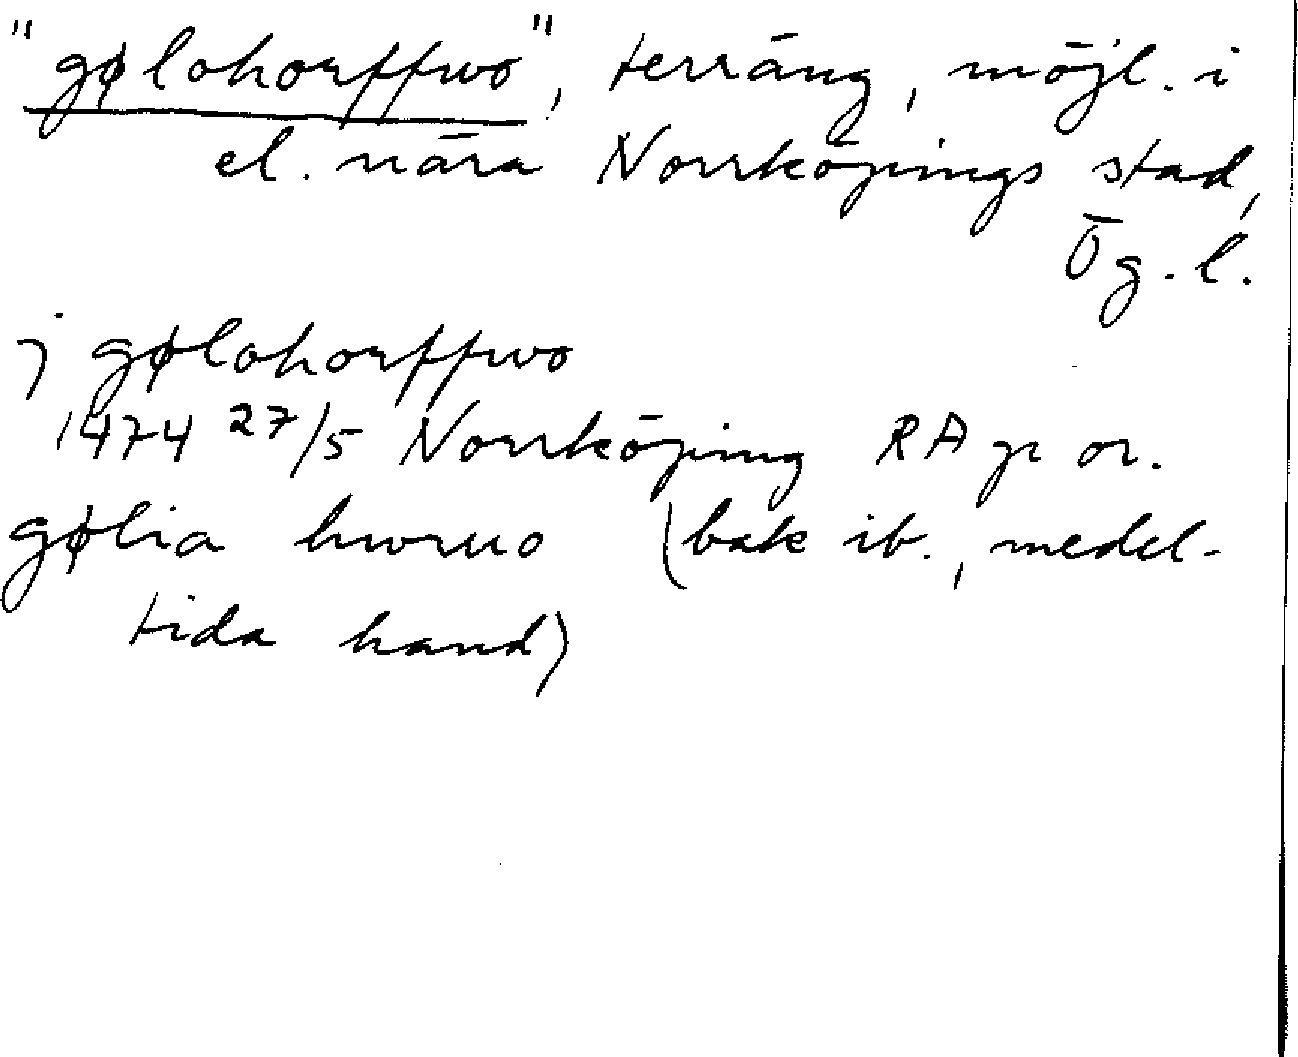 "gølohorffwo", terräng, möjl. i
el. nära Norrköpings stad,
Ög. l.
j gølohorffwo
1474 27/5 Norrköping RAp or.
gølia hwruo (bak ib., medel-
tida hand)